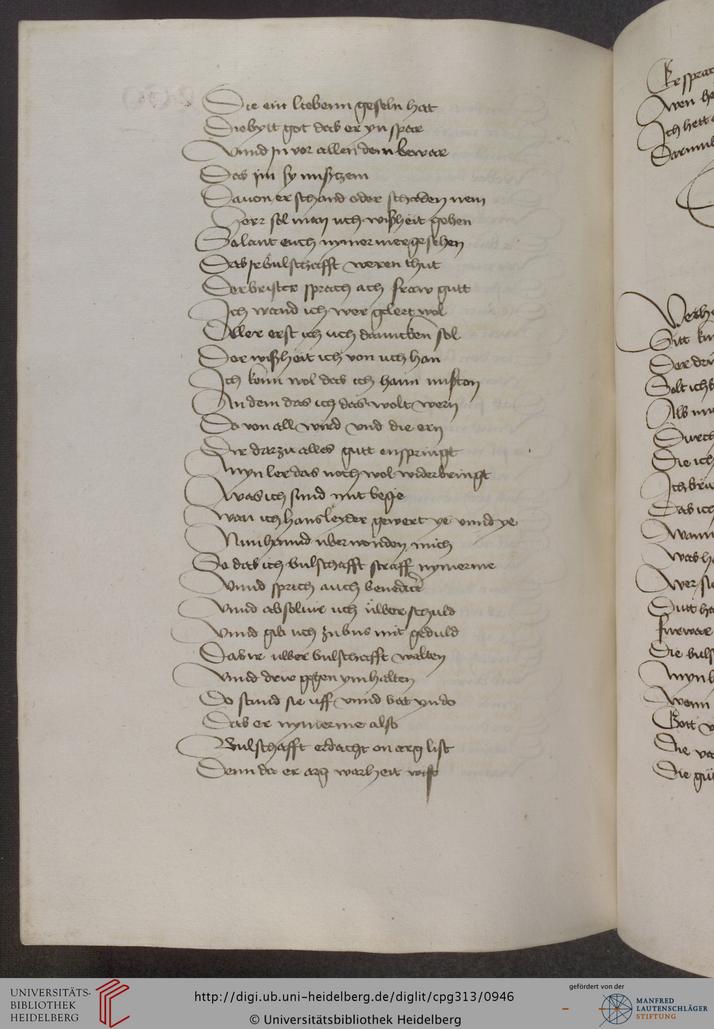 Die ein liebenn geseln hat
Die bytt got das er yn spar
Vnnd jn vor allen dem bewar
Das jm sy
Dauon er schand oder schaden nem
Herr sol man uch wißheit gehen
So lant euch nymer mer gesehen
Das ir bulschafft weren thut
Der brister sprach ach fraw gutt
Ich wand ich wer gelert wol
Aller erst ich uch dancken sol
Der wißheit ich von uch han
Ich kőnn wol das ich hann mißtan
An dem das ich das wolt wern
Do von all wird vnd die ern
Die darzu alles gutt enspringt
Myn ler das noch wol widerbringt
Was ich sund mit begie
Wan ich hans leyder gewert ye vnnd ye
Nun hannd uber wonden mich
So das ich bulschafft straff nymerme
Vnnd sprich auch benedicte
Vnnd absolvir uch ůber schuld
Vnnd gib uch zu bus mit geduld
Das ir uber bulschafft walten
Vnnd drw gegen ym halten
Do stund sie uff vnnd bat yn do
Das er nymerme also
Bulschafft erdacht on arg list
Denn da er arg warheit wist
Er sprac
Wen he
Ich hett
Darumb
Sitt
Der
Solt ich
Als
Durch
Die ich
Ich
Das ich
Wann
Was h
Wer
Dutt
furwar
Die buls
Myn
Wenn
Gott
Die
Die gü
UNIVERSITÄTS-
BIBLIOTHEK
HEIDELBERG
http://digi.ub.uni-heidelberg.de/diglit/cpg313/0946
© Universitätsbibliothek Heidelberg
gefördert von der
MANFRED
LAUTENSCHLÄGER
STIFTUNG